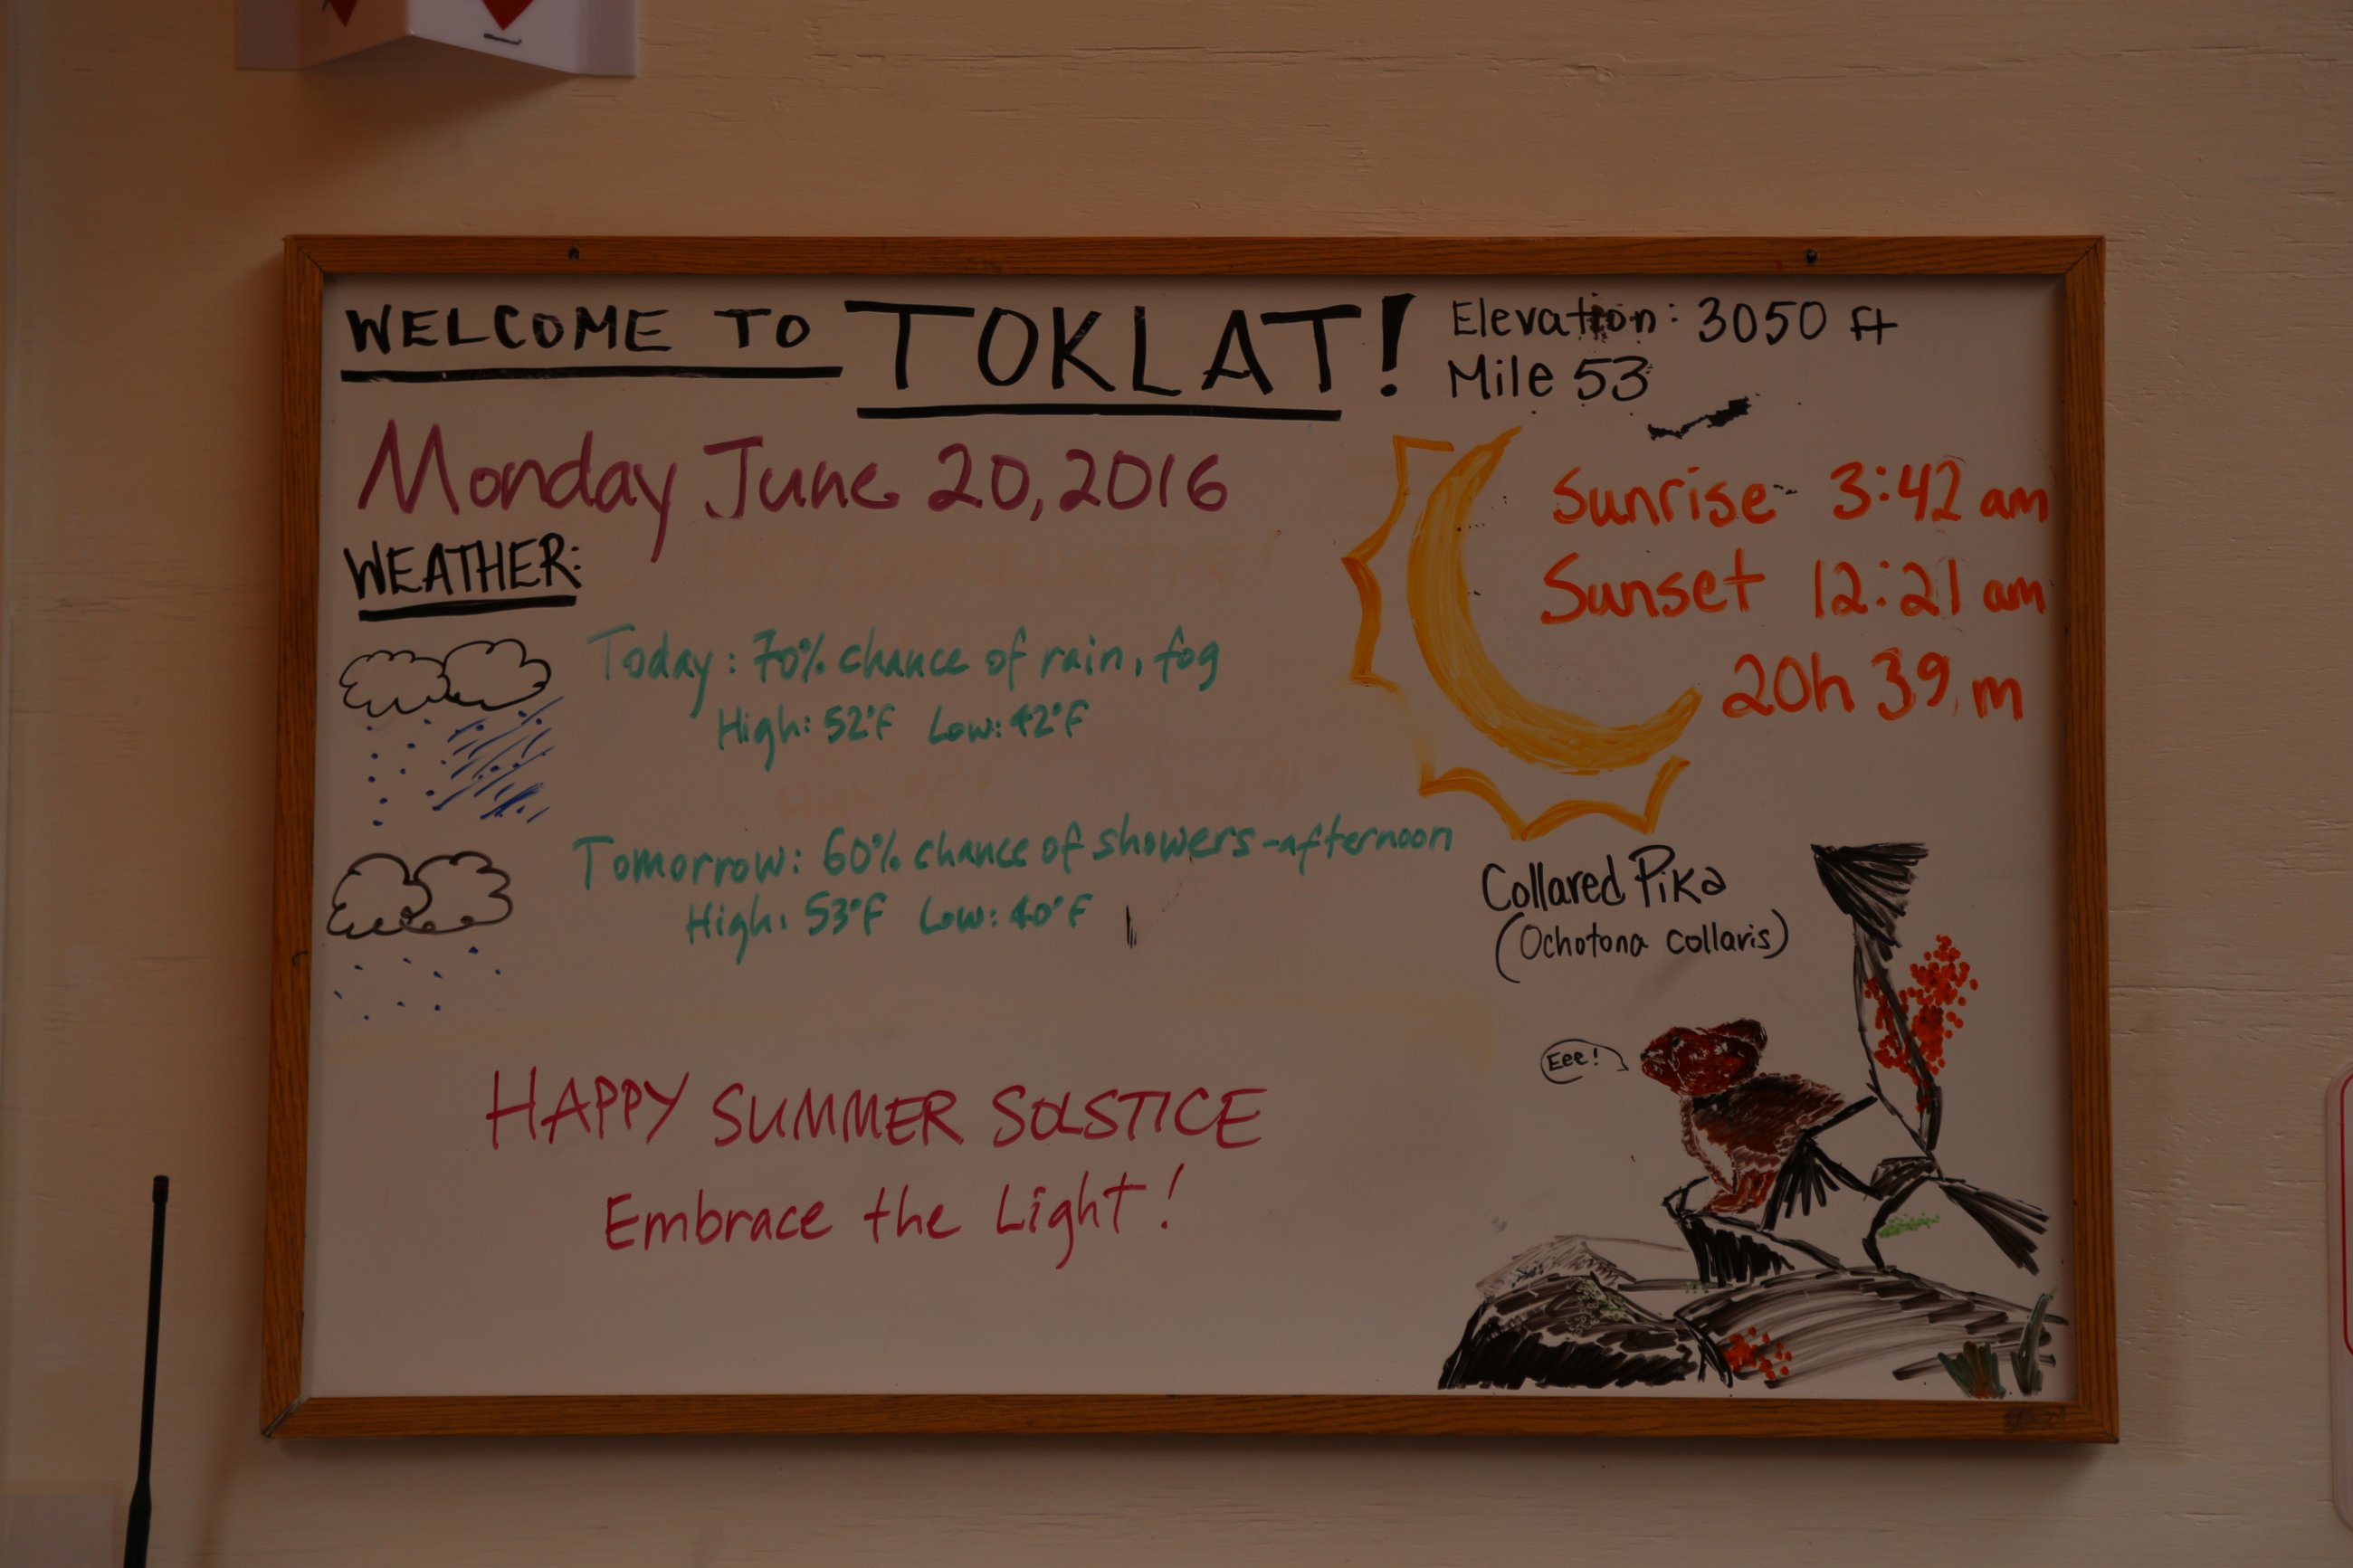 WELCOME TO TOKLAT!
Elevation: 3050 ft
Mile 53
Monday June 20, 2016
Sunrise 3:42 am
Sunset 12:21 am
20h 39 m
WEATHER:
Today: 70% chance of rain, fog
High: 52°F Low: 42°F
Tomorrow: 60% chance of showers-afternoon
High: 53°F Low: 40°F
Collared Pika
(Ochotona collaris)
Eee!
HAPPY SUMMER SOLSTICE
Embrace the Light!